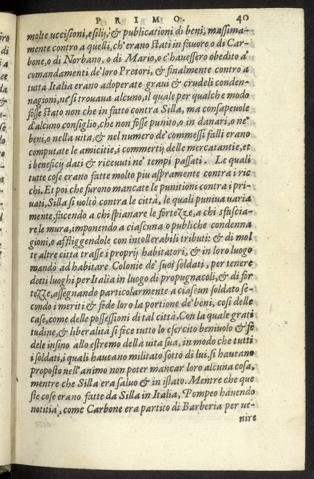 PRIMO. 40
molte uccisioni, esilij, & publicationi di beni, massima-
mente contro a quelli, ch'erano stati in fauore, o di Car-
bone, o di Norbano, o di Mario, c'hauessero obedito a'
comandamenti de' loro Pretori, & finalmente contro a
tutta Italia erano adoperate graui & crudeli conden-
nagioni, ne' si trouaua alcuno, il quale per qualche modo
fosse stato non che in fatto contra Silla, ma consapeuole
d'alcuno consiglio, che non fosse punito, o in danari, o ne'
beni, o nella uita, & nel numero de' commessi falli erano
computate le amicitie, i commertij delle mercatantie, et
i beneficij dati & riceuuti ne' tempi passati. Le quali
tutte cose erano fatte molto piu aspramente contra i ric
chi. Et poi che furono mancate le punitioni contra i pri-
uati, Silla si uoltò contro le città, le quali puniua uaria
mente, facendo a chi spianare le fortezze, a chi sfascia-
re le mura, imponendo a ciascuna o publiche condenna
gioni, o affliggendole con intollerabili tributi: & di mol
te altre città trasse i proprij habitatori, & in loro luogo
mandò ad habitare Colonie de' suoi soldati, per tenere
detti luoghi per Italia in luogo di propugnacoli, & di for
tezze, assegnando particolarmente a ciascun soldato se-
condo i meriti & fede loro la portione de' beni, cosi delle
case, come delle possessioni di tal città. Con la quale grati
tudine, & liberalità si fece tutto lo esercito beniuolo & fe
dele insino allo estremo della uita sua, in modo che tutti
i soldati, i quali haueano militato sotto di lui, si haueano
proposto nell'animo non poter mancar loro alcuna cosa,
mentre che Silla era saluo & in istato. Mentre che que
ste cose erano fatte da Silla in Italia, Pompeo hauendo
notitia, come Carbone era partito di Barberia per ue-
nire